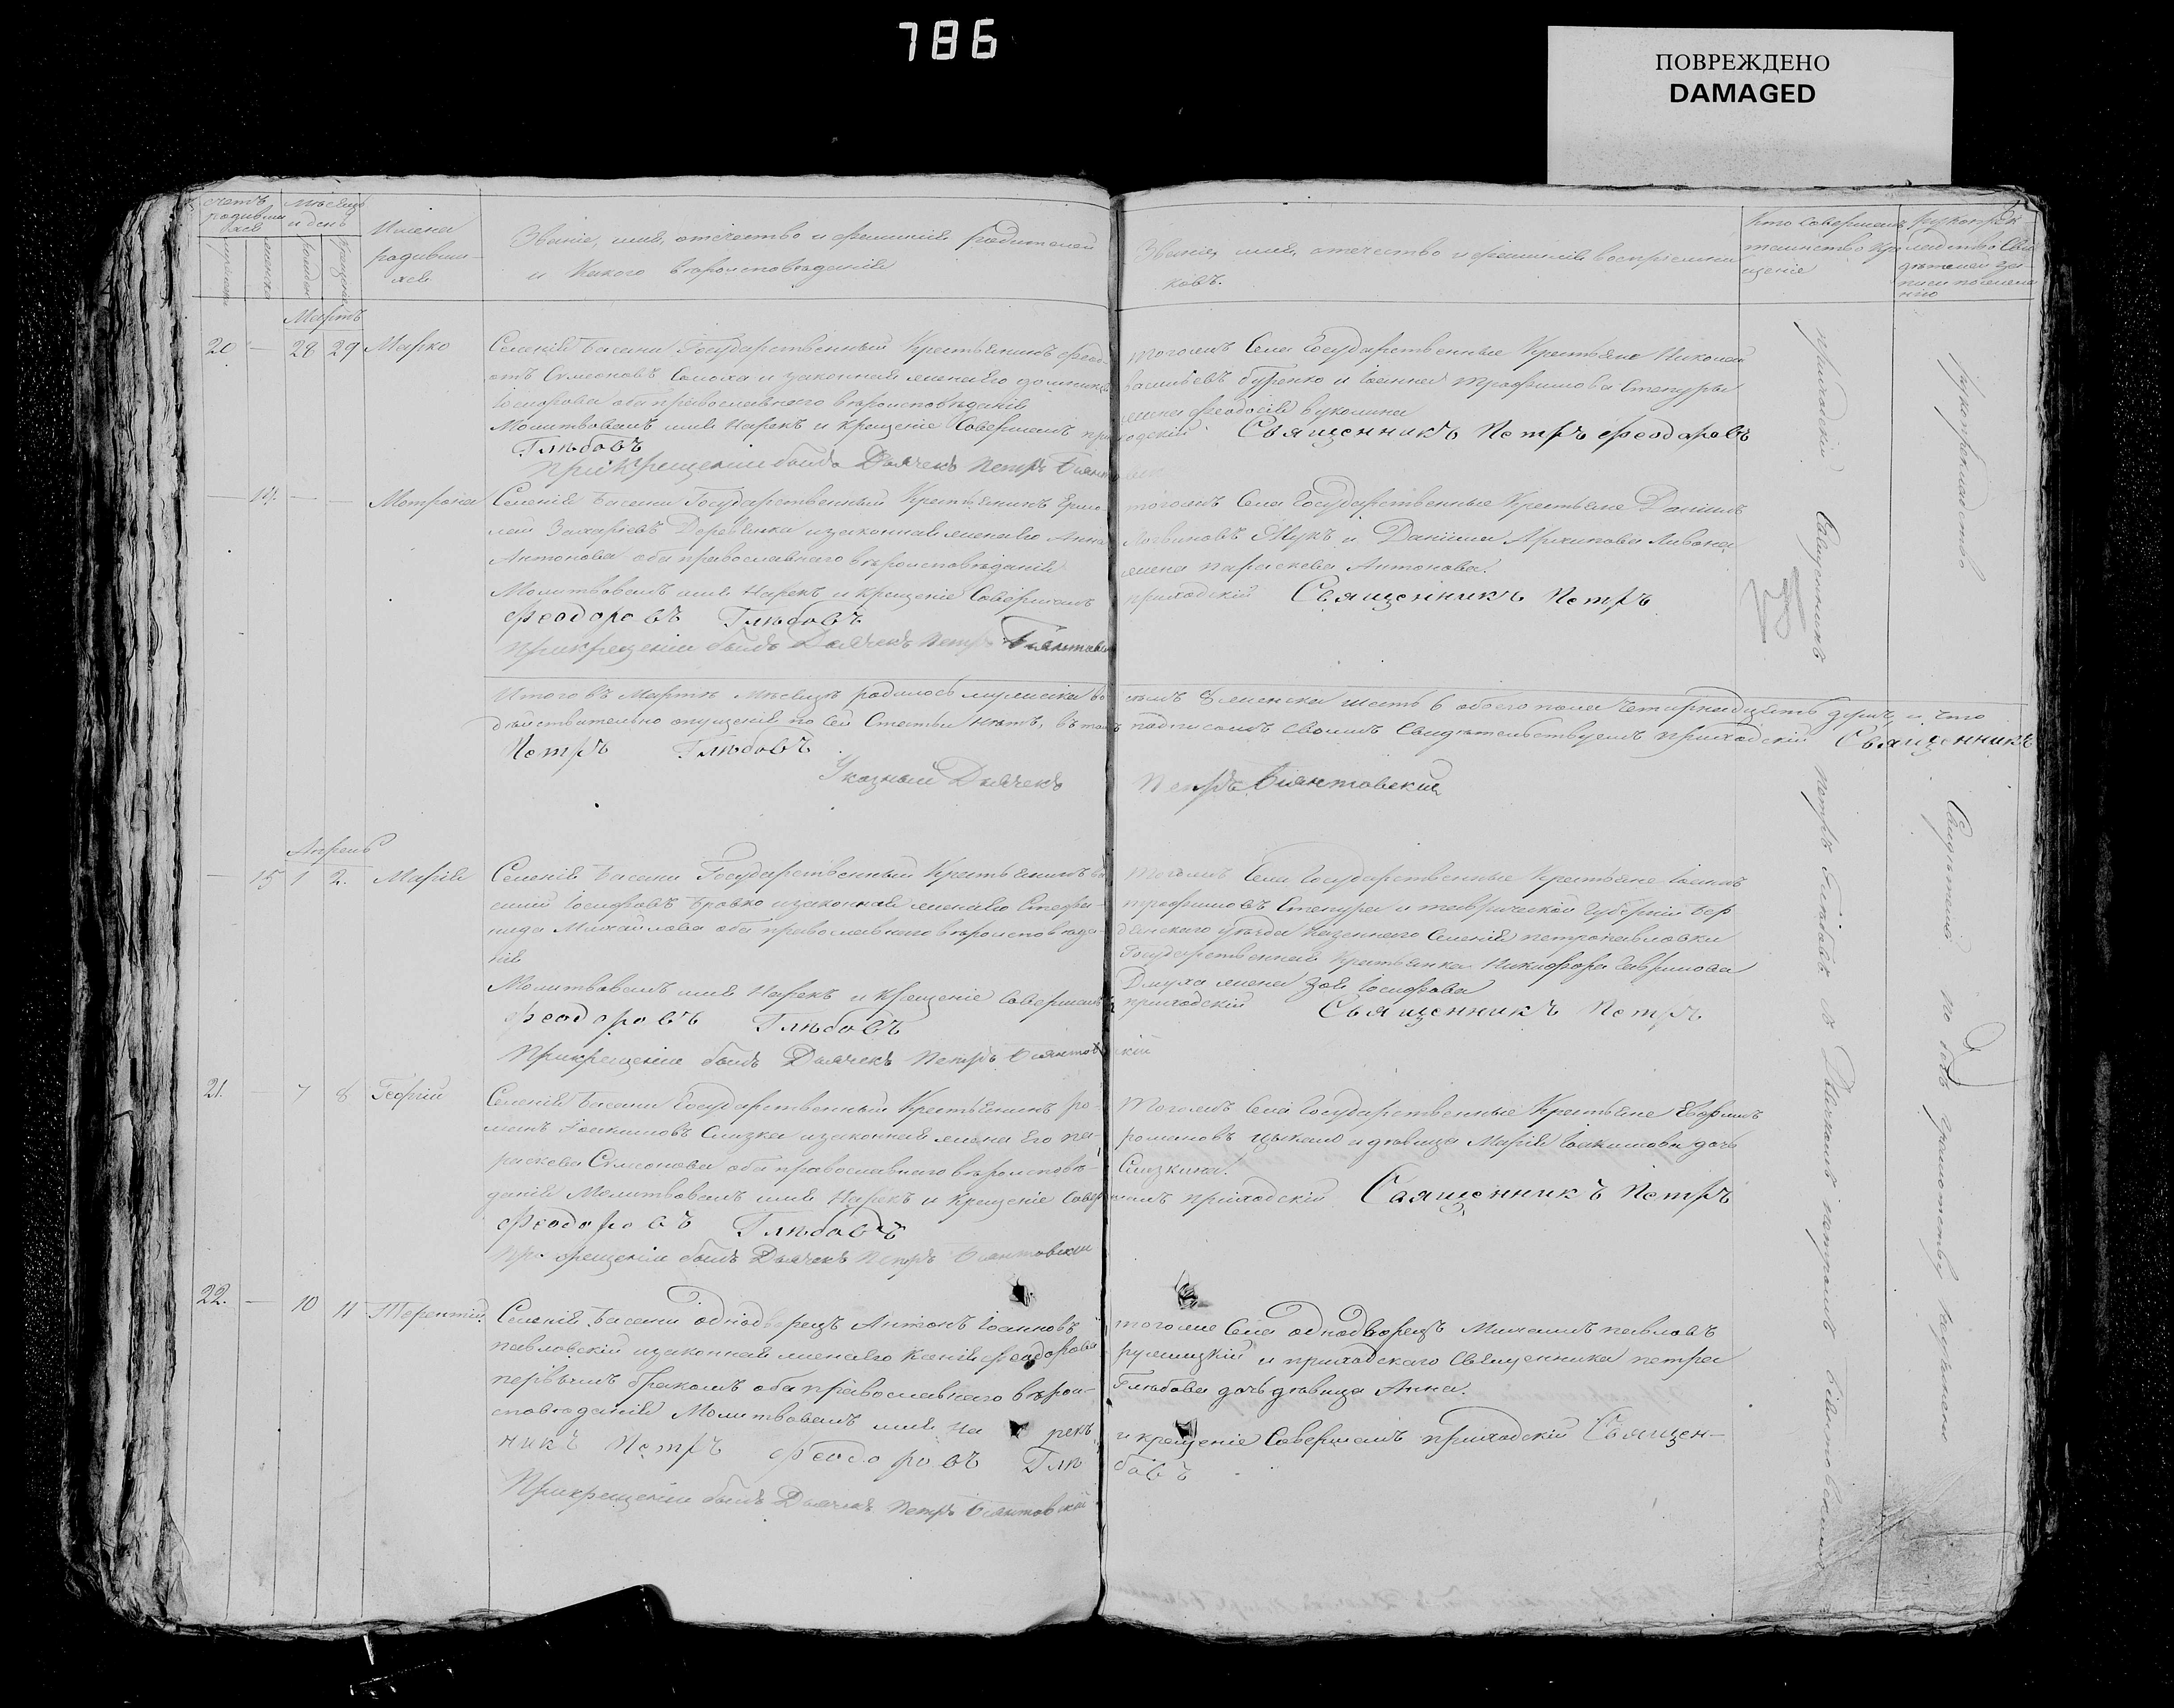 786
ПОВРЕЖДЕНО
DAMAGED
счетъ родившихся
Мѣсяцъ и день
Имена родившихся
Званіе, имя, отечество и фамилія родителей
и какого вѣроисповѣданія
Званіе, имя, отечество и фамилія воспріемни
ковъ.
Кто совершалъ
таинство кре
щенія
Мартъ
20 — 28 29 Марко
Селенія Басани Государственный Крестьянинъ Феод
отъ Симеоновъ Солоха и законная жена его
Іосифова оба православнаго вѣроисповѣданія
Молитвовалъ имя Нарекъ и крещеніе Совершалъ при
Глѣбовъ
При крещеніи былъ Дьячекъ Петръ
тогожъ Села Государственные Крестьяне Николай
васильевъ буренко и Іоанна трофимова Степуры
жена феодосія вуколина
ходскій Священникъ Петръ Феодоровъ
— 14. — — Мотрона
Селенія Басани Государственный Крестьянинъ Ермо
лай Захаріевъ Деревянка и законная жена его Анна
Антонова оба православнаго вѣроисповѣданія
Молитвовалъ имя Нарекъ и крещеніе Совершалъ
Феодоровъ Глѣбовъ
При крещеніи былъ Дьячекъ Петръ
тогожъ Села Государственные Крестьяне Даніилъ
Логвиновъ Жукъ и Даніила Архипова
жена параскева Антонова.
приходскій Священникъ Петръ
Итого въ Мартѣ Мѣсяцѣ родилось мужеска во
семъ 8 женска шесть 6 обоего пола четырнадцать душъ, и что
дѣйствительно опущенія по сей Статьи нѣтъ, въ томъ
подписомъ своимъ Свидѣтельствуемъ приходскій Священникъ
Петръ Глѣбовъ
Указный Дьячекъ Петръ
Апрель
— 15 1 2. Марія
Селенія Басани Государственный Крестьянинъ ва
силій Іосифовъ Бровко и законная жена его Стефа-
нида Михайлова оба православнаго вѣроисповѣда-
нія
Молитвовалъ имя Нарекъ и крещеніе Совершалъ
Феодоровъ Глѣбовъ
При крещеніи былъ Дьячекъ Петръ
тогожъ Села Государственные Крестьяне Іоаннъ
трофимовъ Степура и таврической Губерніи Бер
дянскаго уѣзда казеннаго Селенія петропавловки
Государственная крестьянка Никифора Гаврилова
жена Зоя Іосифова
приходскій Священникъ Петръ
21. — 7 8 Георгій
Селенія Басани Государственный Крестьянинъ ро-
манъ Іоакимовъ Слизка и законная жена Его па-
раскева Симеонова оба православнаго вѣроисповѣ-
данія Молитвовалъ имя Нарекъ и Крещеніе Совер
Феодоровъ Глѣбовъ
При крещеніи былъ Дьячекъ Петръ
тогожъ Села Государственные Крестьяне Евфимъ
романовъ и дѣвица Марія Іоакимова дочь
Слизкина.
шалъ приходскій Священникъ Петръ
22. — 10 11 Терентій
Селенія Басани однодворецъ Антонъ Іоанновъ
павловскій и законная жена его Ксенія феодорова
первымъ бракомъ оба православнаго вѣрои-
сповѣданія Молитвовалъ имя на рекъ
никъ Петръ Феодоровъ Глѣ
При крещеніи былъ Дьячекъ Петръ
тогоже Села однодворецъ Михаилъ павловъ
и приходскаго Священника петра
Глѣбова дочь дѣвица Анна.
и крещеніе Совершалъ приходскій Священ-
бовъ
приходскій Священникъ петръ Глѣбовъ
рукоприкладство Свидѣтелей по